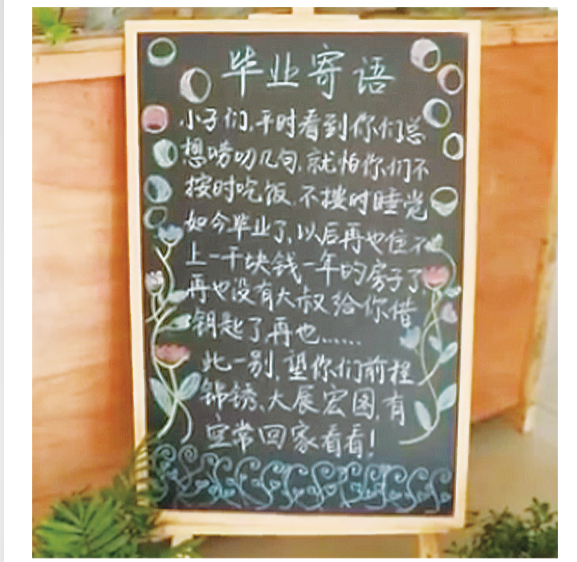 毕业寄语
小子们,平时看到你们总
想唠叨几句,就怕你们不
按时吃饭,不按时睡觉
如今毕业了,以后再也住不
上一千块钱一年的房子了
再也没有大叔给你借
钥匙了,再也……
此一别,望你们前程
锦锈、大展宏图,有
空常回家看看!